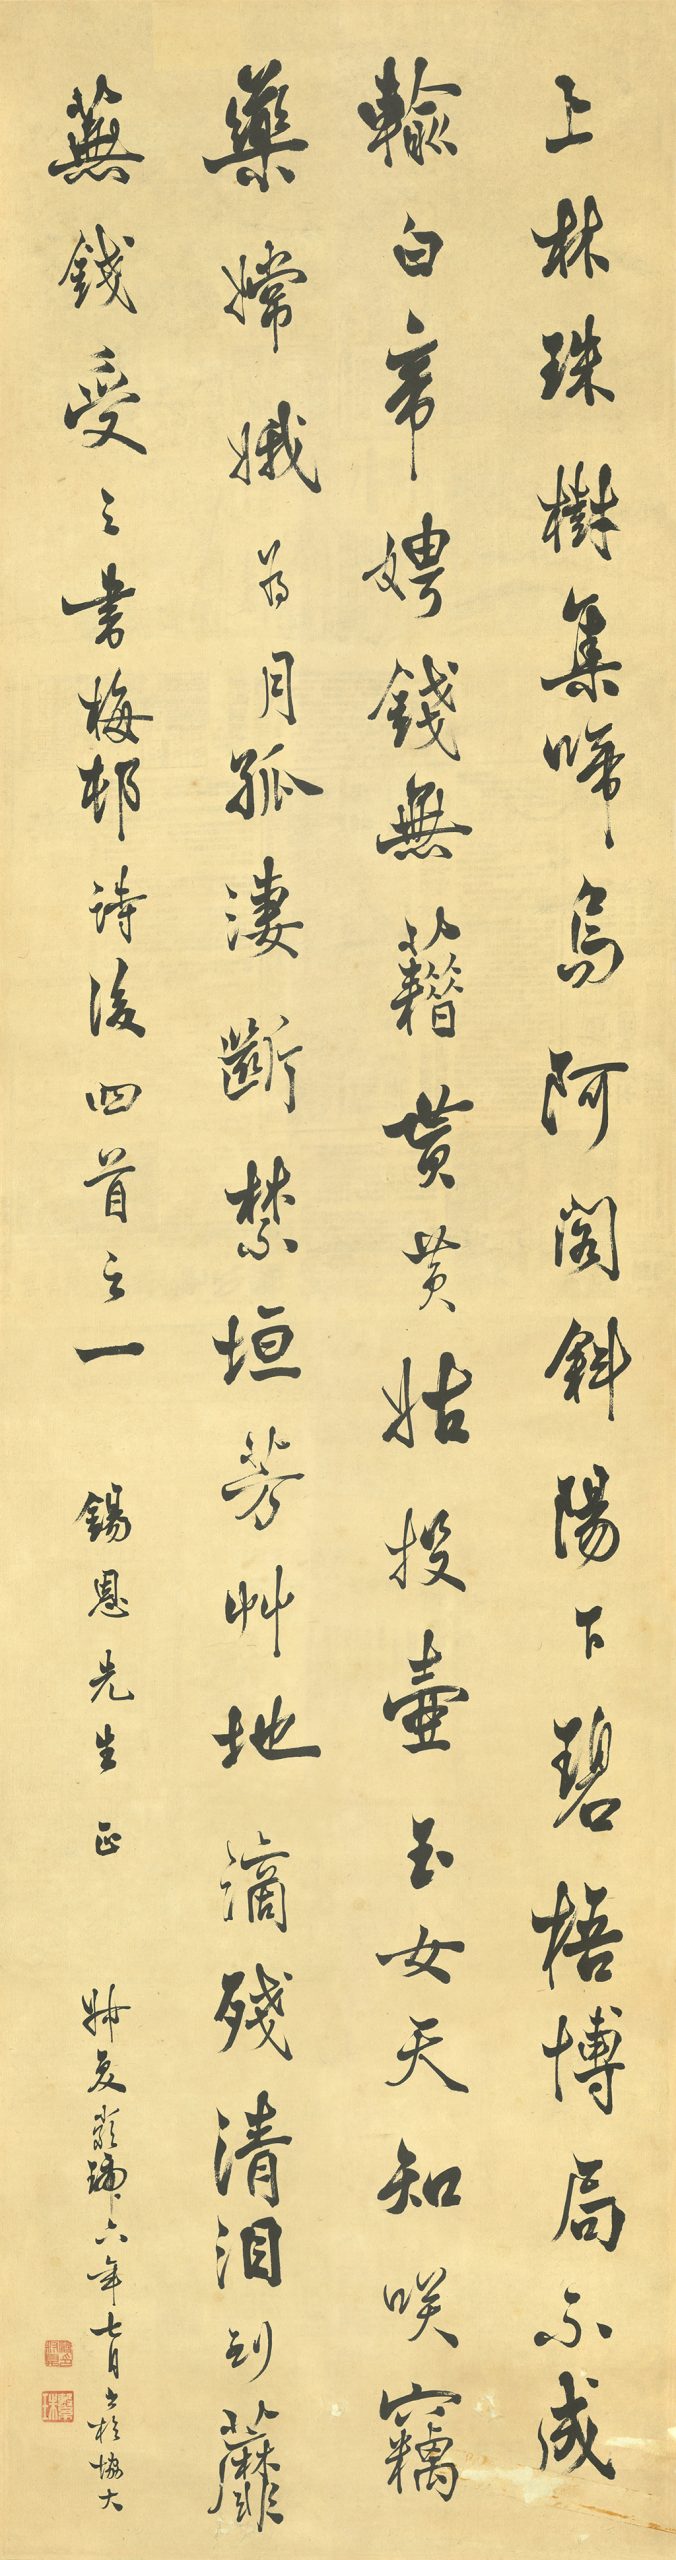 上林珠樹集啼烏阿閣斜陽下碧梧博局不成
輸白帝聘錢無藉貰黃姑投壺玉女天知咲竊
藥嫦娥為月孤淒斷禁垣芳艸地滴殘清泪到蘼
蕪錢受之書梅邨詩後四首之一 錫恩先生正 叔夏嚴琥六年七月書於協大